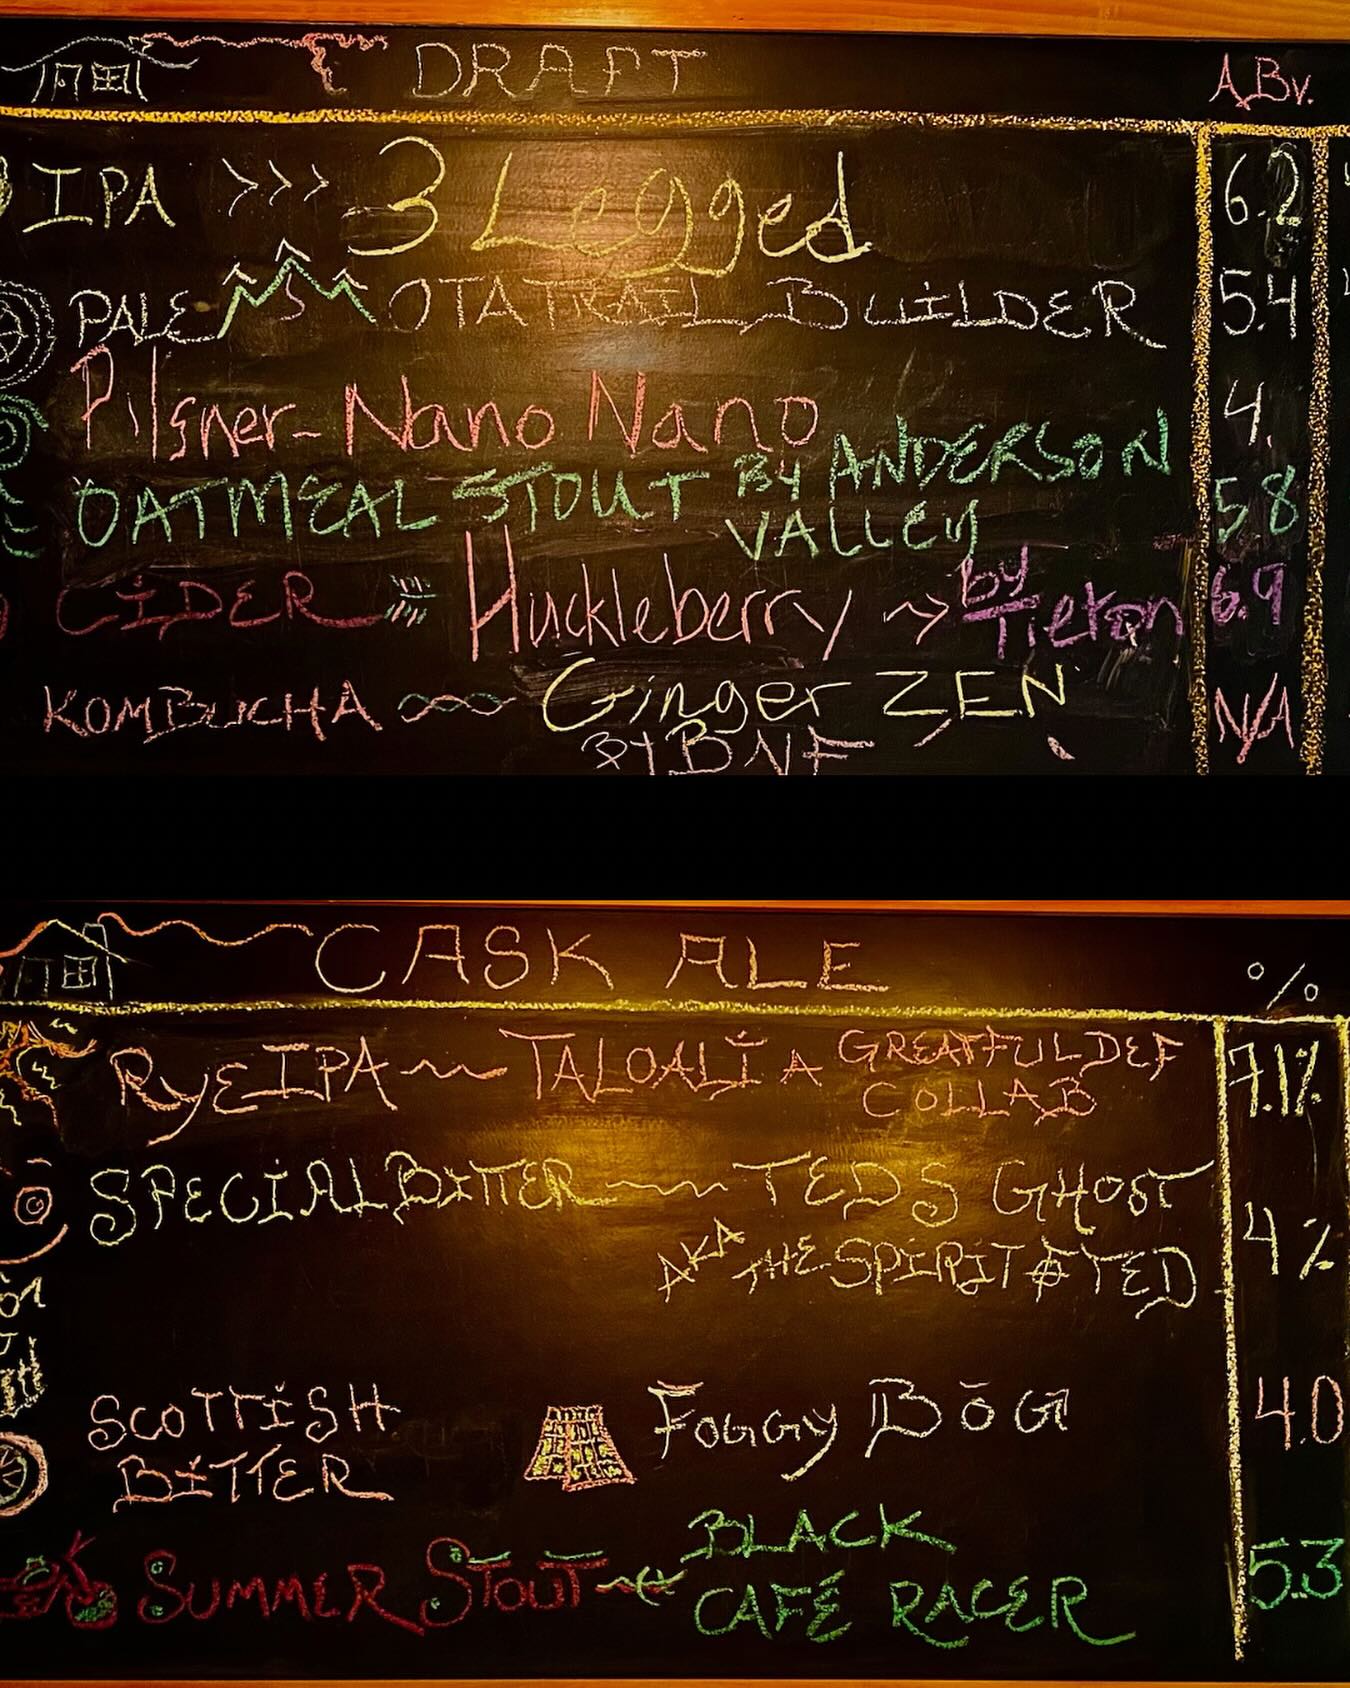 DRAFT A.Bv.
IPA >>> 3 Legged 6.2
PALE OTA TRAIL BUILDER 5.4
Pilsner- Nano Nano 4.
OATMEAL STOUT BY ANDERSON VALLEY 5.8
CIDER Huckleberry → by Tieton 6.9
KOMBUCHA Ginger ZEN N/A
BY BNF
CASK ALE %
RYE IPA ~ TALOALI A GREATFUL DEF COLLAB 7.1%
SPECIAL BITTER ~ TEDS GHOST 4%
AKA THE SPIRIT OF TED
SCOTTISH BITTER FOGGY BOG 4.0
SUMMER STOUT BLACK CAFE RACER 5.3